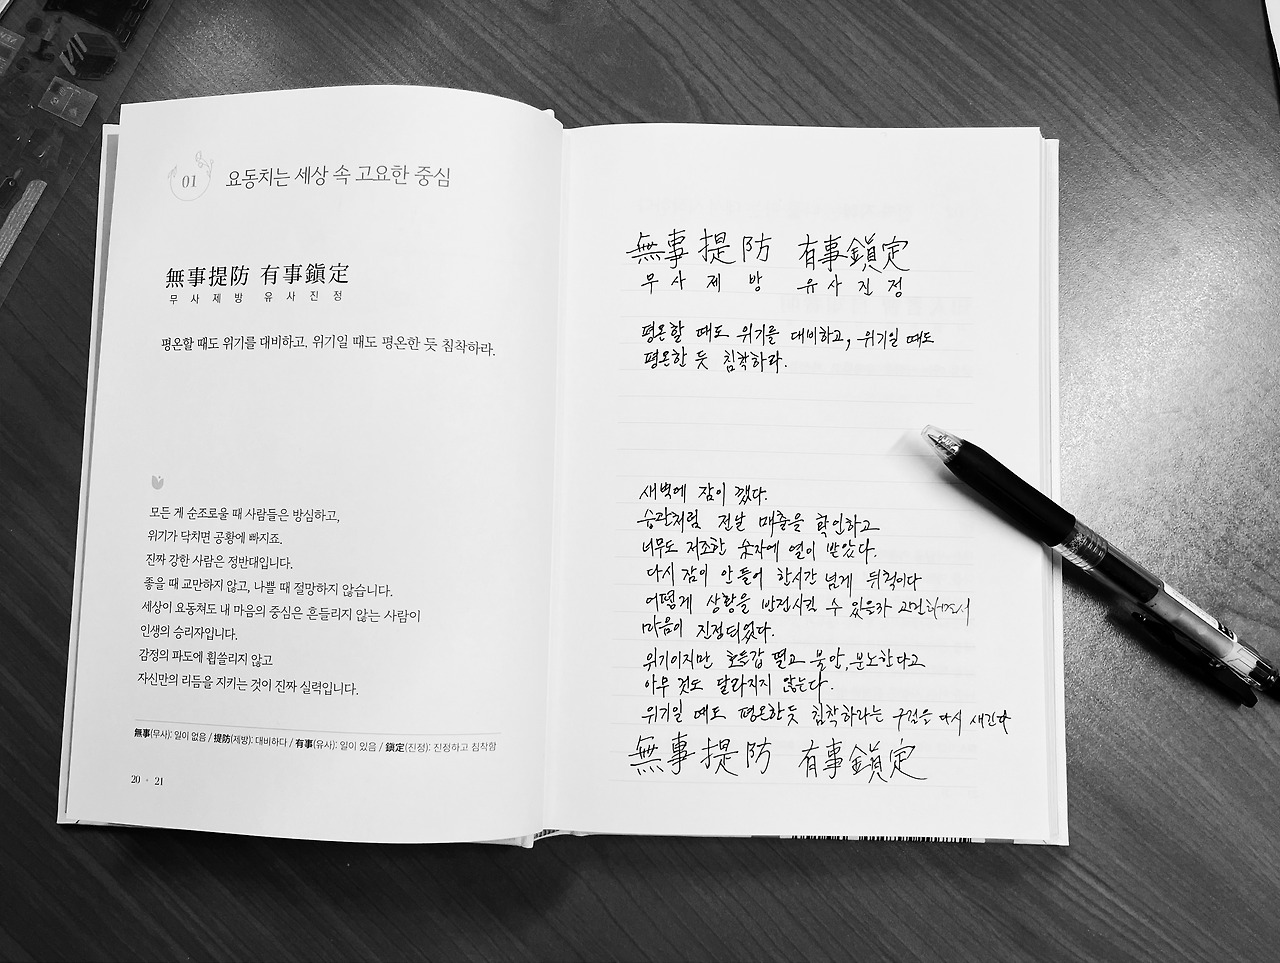 01 요동치는 세상 속 고요한 중심
無事提防 有事鎭定
무사제방 유사진정
평온할 때도 위기를 대비하고, 위기일 때도 평온한 듯 침착하라.
모든 게 순조로울 때 사람들은 방심하고,
위기가 닥치면 공황에 빠지죠.
진짜 강한 사람은 정반대입니다.
좋을 때 교만하지 않고, 나쁠 때 절망하지 않습니다.
세상이 요동쳐도 내 마음의 중심은 흔들리지 않는 사람이
인생의 승리자입니다.
감정의 파도에 휩쓸리지 않고
자신만의 리듬을 지키는 것이 진짜 실력입니다.
無事(무사): 일이 없음 / 提防(제방): 대비하다 / 有事(유사): 일이 있음 / 鎭定(진정): 진정하고 침착함
20 · 21
無事提防 有事鎭定
무사제방 유사진정
평온할 때도 위기를 대비하고, 위기일 때도
평온한 듯 침착하라.
새벽에 잠이 깼다.
습관처럼 전날 매출을 확인하고
너무도 저조한 숫자에 열이 받았다.
다시 잠이 안 들어 한시간 넘게 뒤척이다
어떻게 상황을 반전시킬 수 있을까 고민하면서
마음이 진정되었다.
위기이지만 호들갑 떨고 불안, 분노한다고
아무 것도 달라지지 않는다.
위기일 때도 평온한듯 침착하라는 구절을 다시 새긴다
無事提防 有事鎭定